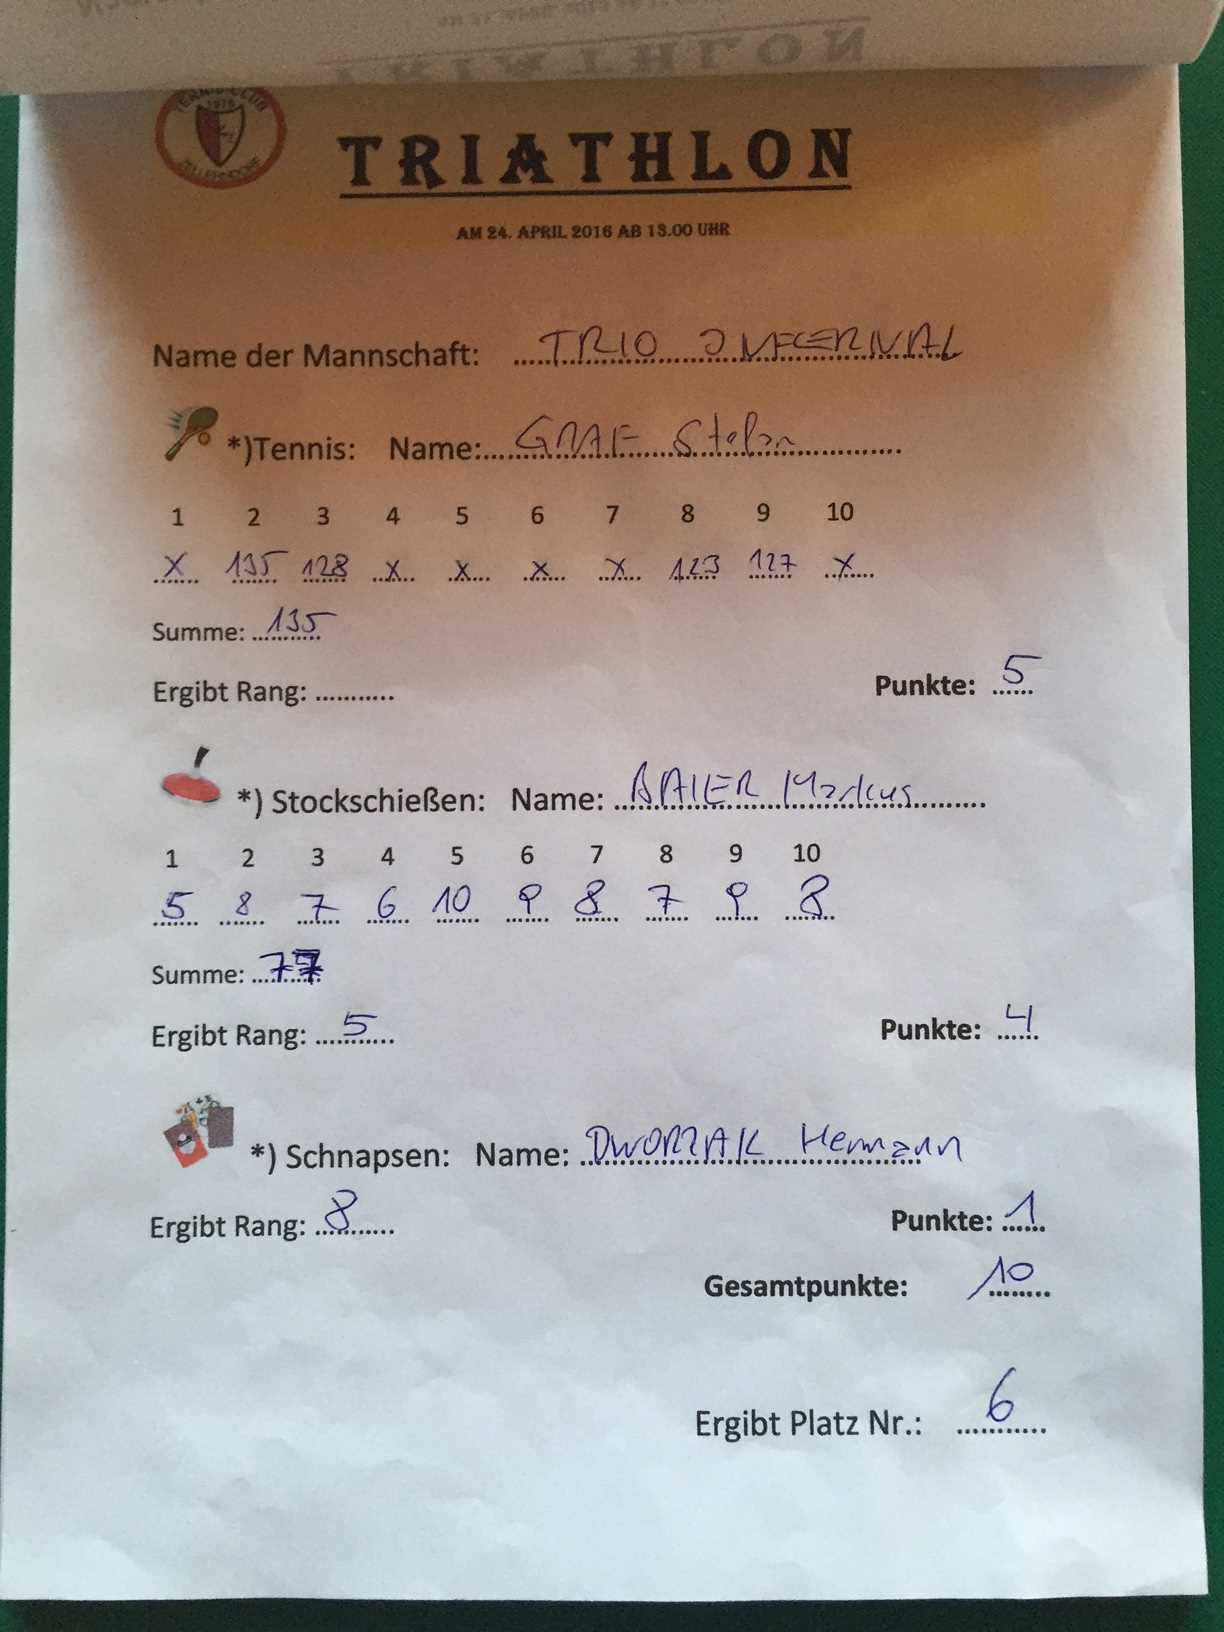 TENNIS CLUB
1978
ZELLERNDORF
TRIATHLON
AM 24. APRIL 2016 AB 13.00 UHR
Name der Mannschaft: TRIO INFERNAL
*)Tennis: Name: GRAF Stefan
1 2 3 4 5 6 7 8 9 10
X 135 128 X X X X 123 127 X
Summe: 135
Ergibt Rang: ...........
Punkte: 5
*) Stockschießen: Name: BAIER Markus
1 2 3 4 5 6 7 8 9 10
5 8 7 6 10 9 8 7 9 8
Summe: 77
Ergibt Rang: 5
Punkte: 4
*) Schnapsen: Name: DWORZAK Hermann
Ergibt Rang: 8
Punkte: 1
Gesamtpunkte: 10
Ergibt Platz Nr.: 6